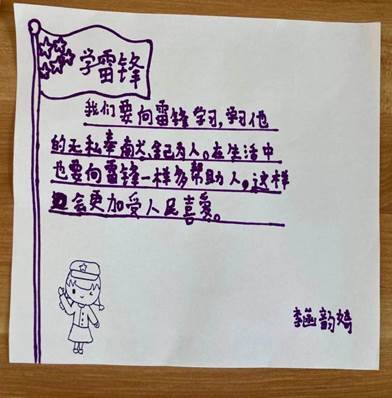 学雷锋
我们要向雷锋学习，学习他
的无私奉献、舍己为人。在生活中
也要向雷锋一样多帮助人。这样
会更加受人民喜爱。
李函韵婍